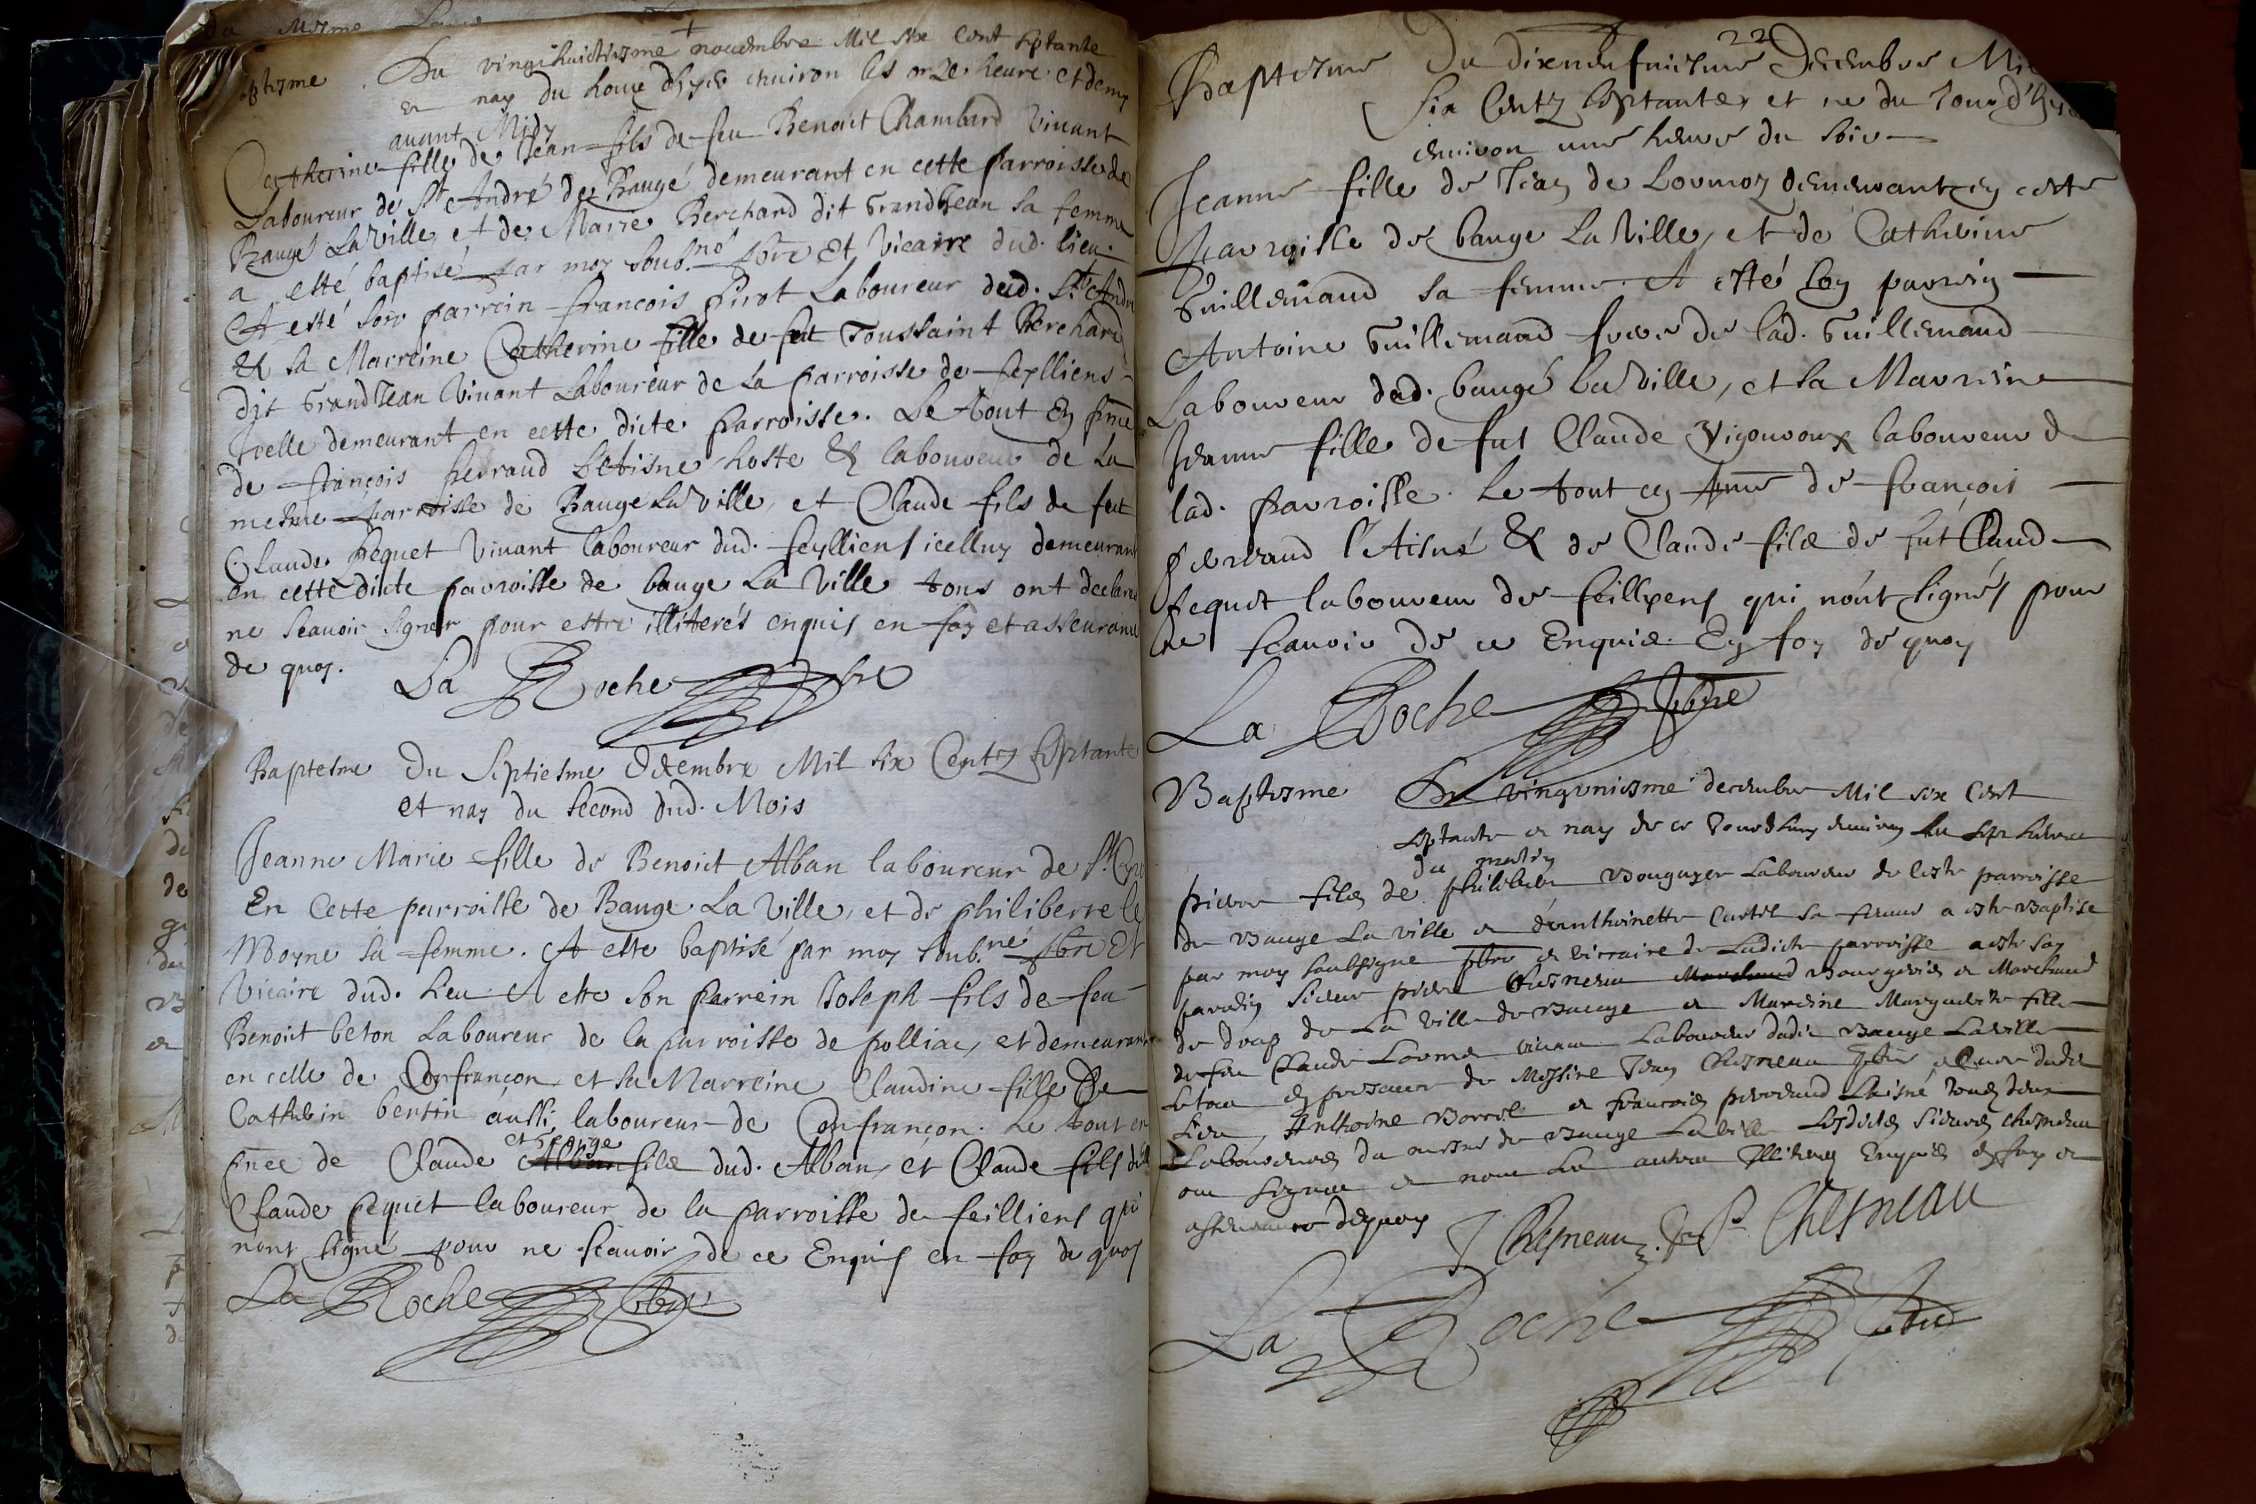 Baptesme Du vingthuictiesme novembre Mil six Cent septante
et nay du Jour d'hyer environ les onze heure et demy
avant Midy
Catherine fille de Jean fils de feu Benoit Chambard Vivant
Laboureur de St André de Baugé demeurant en cette parroisse de
Baugé La Ville, et de Marie Berchard dit GrandJean sa femme
a esté baptisé par moy soubs.né pbre Et Vicaire dud. lieu.
Et esté son parrein francois pirot Laboureur dud. St André
Et sa Marreine Catherine fille de feu Toussaint Berchard
dit GrandJean Vivant Laboureur de la parroisse de feylliens
Icelle demeurant en cette dicte parroisse. Le tout En pnce
de françois perraud L'Aisne hoste Et laboureur de La
mesme parroisse de Bauge La Ville, et Claude fils de feu
Claude pequet Vivant laboureur dud. feylliens icelluy demeurant
en cette dicte parroisse de bauge La Ville tous ont declaré
ne scavoir signer pour estre illiterés enquis en foy et asseurance
de quoy.
La Roche pbre
Baptesme Du Septiesme Decembre Mil six Centz septante
et nay du second dud. Mois
Jeanne Marie fille de Benoict Alban laboureur de St Cyre
En Cette parroisse de Bauge La Ville, et de philiberte le
Moyne sa femme. A este baptisé par moy soub.né pbre Et
Vicaire dud. lieu Et este son Parrein Joseph fils de feu
Benoit beton Laboureur de la parroisse de polliac, et demeurant
en celle de Confrançon, et sa Marreine Claudine fille de
Cathebin aussi laboureur de Confrançon. Le tout en
pnce de Claude Alban fils dud. Alban, et Claude fils de
Claude pequet laboureur de la parroisse de feilliens qui
nont signé pour ne scavoir de ce Enquis en foy de quoy
La Roche pbre
22
Baptesme Du dixneufviesme Decembre Mil
six Centz septante, et ne du Jour d'hyer
environ une heure du soir
Jeanne fille de Jean de Lormoy demeurant en ceste
parroisse de bauge La Ville, et de Catherine
Guillemaud sa femme. A esté son parrein
Antoine Guillemaud frere de lad. Guillemaud
Laboureur dud. baugé La Ville, et sa Marreine
Jeanne fille de fut Claude Vigouroux laboureur de
lad. parroisse. Le tout en pnce de françois
perraud l'Aisné & de Claude fils de fut Claude
pequet laboureur de feilliens qui n'ont signés pour
ne scavoir de ce Enquis. En foy de quoy
La Roche pbre
Baptesme Du vingtuniesme decembre Mil six Cent
septante et nay de ce Jourdhuy environ les sept heures
du matin
pierre fils de philibert Bouguyer Laboureur de ceste parroisse
de Bauge La ville et d'anthoinette Curtil sa femme a este Baptisé
par moy soubsigne pbre et vicaire de Ladicte parroisse a este son
parrein Sieur pierre Chesneau Marchand Bourgeois et Marchand
de drap de La Ville de Bauge et Mareine Marguerite fille
de feu Claude vivant Laboureur dudit Bauge Laville
Le tout en presence de Messire Jean Chesneau pbre et Cure dudit
Lieu, Anthoine Borrel et francois perreraud Laisné tous deux
Laboureurs du mesme de Bauge Laville Lesdictes sieurs chesneau
ont signez et non Les autres Illiteres Enquis en foy et
asseurance dequoy J Chesneau P Chesneau
La Roche pbre